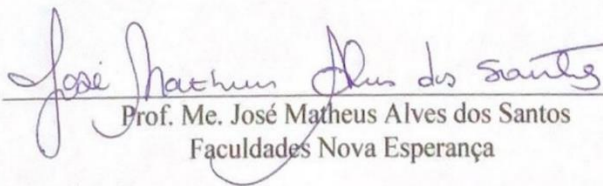 José Matheus Alves dos Santos
Prof. Me. José Matheus Alves dos Santos
Faculdades Nova Esperança